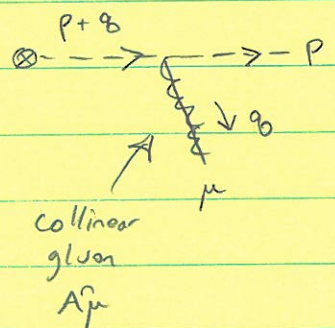 p+q
p
q
μ
collinear
gluon
A^μ